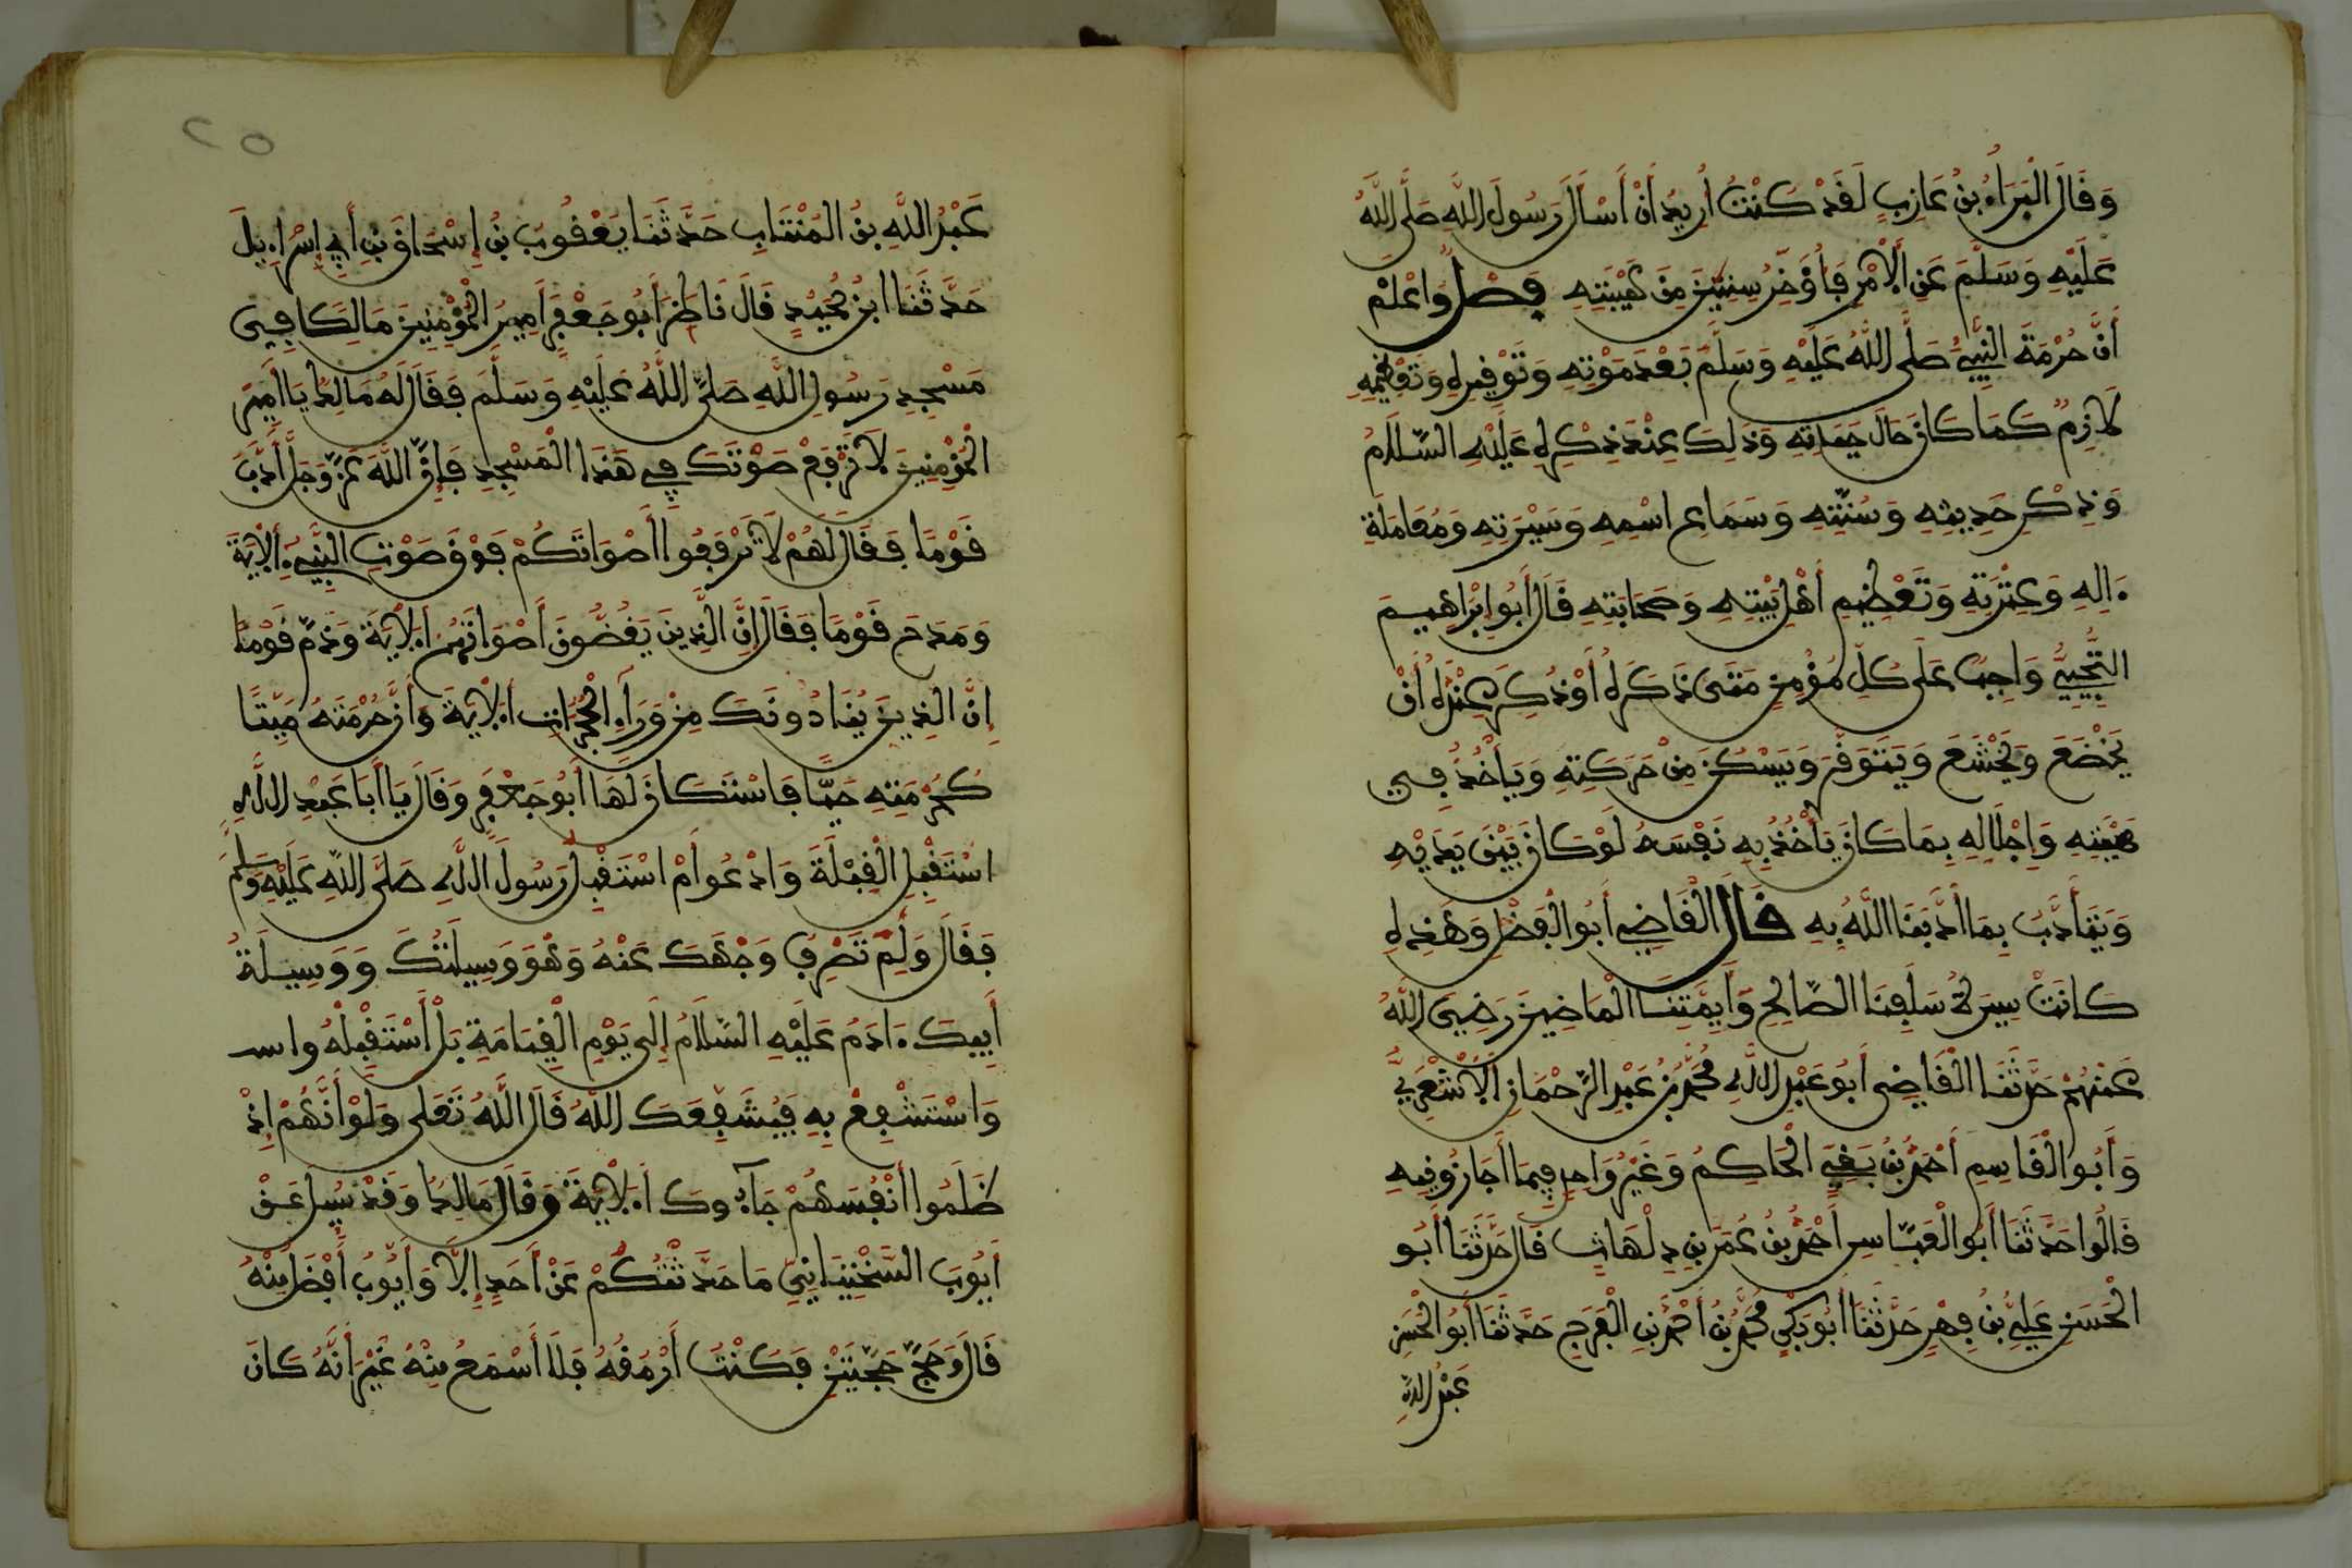 وَقَالَ الْبَرَاءُ بْنُ عَازِبٍ لَقَدْ كُنْتُ أُرِيدُ أَنْ أَسْأَلَ رَسُولَ اللَّهِ صَلَّى اللَّهُ
عَلَيْهِ وَسَلَّمَ عَنِ الْأَمْرِ فَأُؤَخِّرُ سِنِينَ مِنْ هَيْبَتِهِ فَصْلٌ وَاعْلَمْ
أَنَّ حُرْمَةَ النَّبِيِّ صَلَّى اللَّهُ عَلَيْهِ وَسَلَّمَ بَعْدَ مَوْتِهِ وَتَوْقِيرِهِ وَتَعْظِيمِهِ
لَازِمٌ كَمَا كَانَ حَالَ حَيَاتِهِ وَذَلِكَ عِنْدَ ذِكْرِهِ عَلَيْهِ السَّلَامُ
وَذِكْرِ حَدِيثِهِ وَسُنَّتِهِ وَسَمَاعِ اسْمِهِ وَسِيرَتِهِ وَمُعَامَلَةِ
ءَالِهِ وَعِتْرَتِهِ وَتَعْظِيمِ أَهْلِ بَيْتِهِ وَصَحَابَتِهِ قَالَ أَبُو إِبْرَاهِيمَ
التُّجِيبِيُّ وَاجِبٌ عَلَى كُلِّ مُؤْمِنٍ مَتَى ذَكَرَهُ أَوْ ذُكِرَ عِنْدَهُ أَنْ
يَخْضَعَ وَيَخْشَعَ وَيَتَوَقَّرَ وَيَسْكُنَ مِنْ حَرَكَتِهِ وَيَأْخُذُ فِي
هَيْبَتِهِ وَإِجْلَالِهِ بِمَا كَانَ يَأْخُذُ بِهِ نَفْسَهُ لَوْ كَانَ بَيْنَ يَدَيْهِ
وَيَتَأَدَّبُ بِمَا أَدَّبَنَا اللَّهُ بِهِ قَالَ الْقَاضِي أَبُو الْفَضْلِ وَهَذِهِ
كَانَتْ سِيرَةُ سَلَفِنَا الصَّالِحِ وَأَيِمَّتِنَا الْمَاضِينَ رَضِيَ اللَّهُ
عَنْهُمْ حَدَّثَنَا الْقَاضِي أَبُو عَبْدِ اللَّهِ مُحَمَّدُ بْنُ عَبْدِ الرَّحْمَانِ الْأَشْعَرِيُّ
وَأَبُو الْقَاسِمِ أَحْمَدُ بْنُ بَقِيٍّ الْحَاكِمُ وَغَيْرُ وَاحِدٍ فِيمَا أَجَازُونِيهِ
قَالُوا حَدَّثَنَا أَبُو الْعَبَّاسِ أَحْمَدُ بْنُ عُمَرَ بْنِ دِلْهَاثٍ قَالَ حَدَّثَنَا أَبُو
الْحَسَنِ عَلِيُّ بْنُ فِهْرٍ حَدَّثَنَا أَبُو بَكْرٍ مُحَمَّدُ بْنُ أَحْمَدَ بْنِ الْفَرَجِ حَدَّثَنَا أَبُو الْحَسَنِ
عَبْدُ اللَّهِ
٢٥
عَبْدُ اللَّهِ بْنُ الْمُنْتَابِ حَدَّثَنَا يَعْقُوبُ بْنُ إِسْحَاقَ بْنِ أَبِي إِسْرَاءِيلَ
حَدَّثَنَا ابْنُ حُمَيْدٍ قَالَ نَاظَرَ أَبُو جَعْفَرٍ أَمِيرُ الْمُؤْمِنِينَ مَالِكًا فِي
مَسْجِدِ رَسُولِ اللَّهِ صَلَّى اللَّهُ عَلَيْهِ وَسَلَّمَ فَقَالَ لَهُ مَالِكٌ يَا أَمِيرَ
الْمُؤْمِنِينَ لَا تَرْفَعْ صَوْتَكَ فِي هَذَا الْمَسْجِدِ فَإِنَّ اللَّهَ عَزَّ وَجَلَّ أَدَّبَ
قَوْمًا فَقَالَ لَهُمْ لَا تَرْفَعُوا أَصْوَاتَكُمْ فَوْقَ صَوْتِ النَّبِيءِ الْآيَةَ
وَمَدَحَ قَوْمًا فَقَالَ إِنَّ الَّذِينَ يَغُضُّونَ أَصْوَاتَهُمُ الْآيَةَ وَذَمَّ قَوْمًا
إِنَّ الَّذِينَ يُنَادُونَكَ مِنْ وَرَاءِ الْحُجُرَاتِ الْآيَةَ وَأَنَّ حُرْمَتَهُ مَيِّتًا
كَحُرْمَتِهِ حَيًّا فَاسْتَكَانَ لَهَا أَبُو جَعْفَرٍ وَقَالَ يَا أَبَا عَبْدِ اللَّهِ
اسْتَقْبِلِ الْقِبْلَةَ وَادْعُوا أَمْ اسْتَقْبِلْ رَسُولَ اللَّهِ صَلَّى اللَّهُ عَلَيْهِ وَسَلَّمَ
فَقَالَ وَلِمَ تَصْرِفُ وَجْهَكَ عَنْهُ وَهُوَ وَسِيلَتُكَ وَوَسِيلَةُ
أَبِيكَ ءَادَمَ عَلَيْهِ السَّلَامُ إِلَى يَوْمِ الْقِيَامَةِ بَلْ اسْتَقْبِلْهُ واسـ
وَاسْتَشْفِعْ بِهِ فَيُشَفِّعَكَ اللَّهُ قَالَ اللَّهُ تَعَلَى وَلَوْ أَنَّهُمْ إِذْ
ظَلَمُوا أَنْفُسَهُمْ جَآءُوكَ الْآيَةَ وَقَالَ مَالِكٌ وَقَدْ سُئِلَ عَنْ
أَيُّوبَ السَّخْتِيَانِيِّ مَا حَدَّثْتُكُمْ عَنْ أَحَدٍ إِلَّا وَأَيُّوبُ أَفْضَلُ مِنْهُ
قَالَ وَحَجَّ حَجَّتَيْنِ فَكُنْتُ أَرْمُقُهُ فَلَا أَسْمَعُ مِنْهُ غَيْرَ أَنَّهُ كَانَ